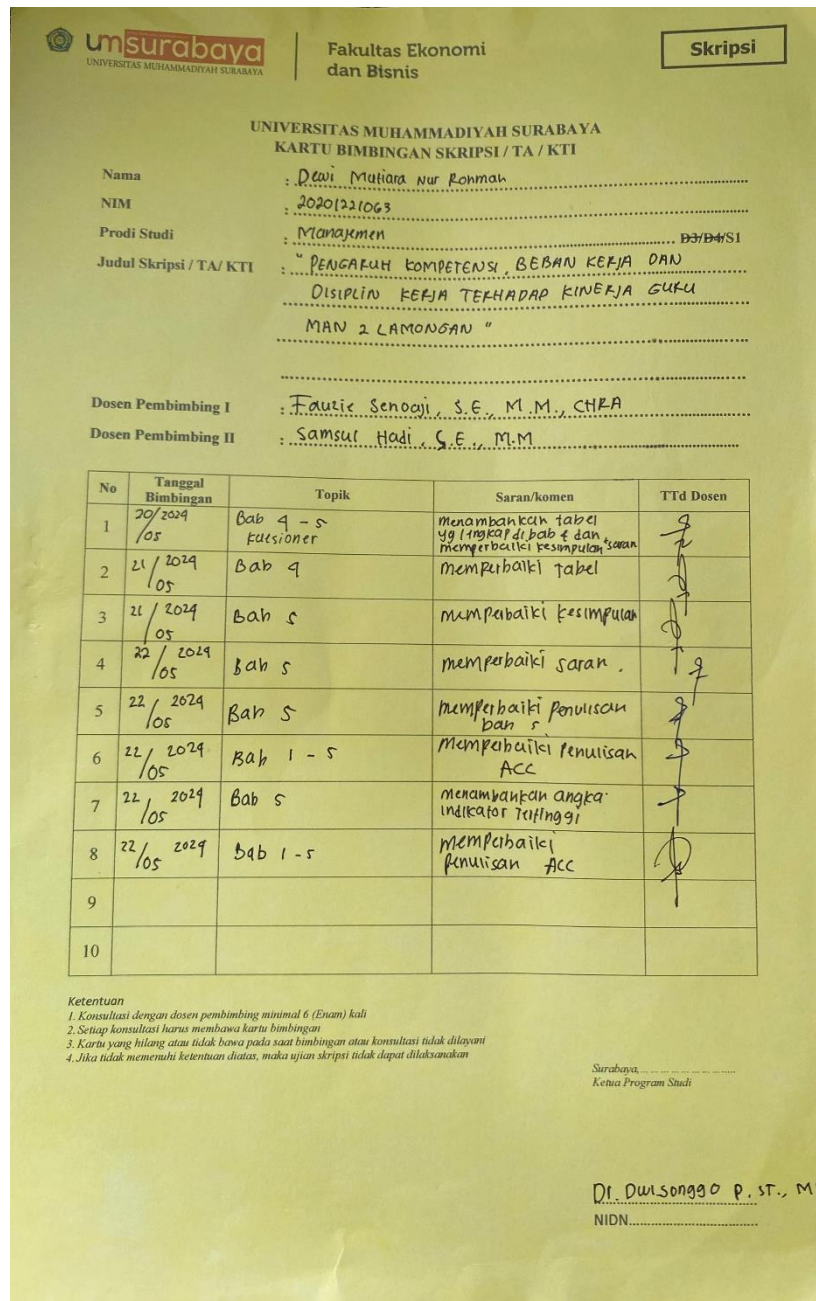 umsurabaya
UNIVERSITAS MUHAMMADIYAH SURABAYA
Fakultas Ekonomi
dan Bisnis
Skripsi
UNIVERSITAS MUHAMMADIYAH SURABAYA
KARTU BIMBINGAN SKRIPSI / TA / KTI
Nama : Dewi Mutiara Nur Rohmah
NIM : 20201221063
Prodi Studi : Manajemen D3/D4/S1
Judul Skripsi / TA/ KTI : " PENGARUH KOMPETENSI, BEBAN KERJA DAN
DISIPLIN KERJA TERHADAP KINERJA GURU
MAN 2 LAMONGAN "
Dosen Pembimbing I : Fauzie Senoaji, S.E., M.M., CHRA
Dosen Pembimbing II : Samsul Hadi, S.E., M.M
No Tanggal Bimbingan Topik Saran/komen TTd Dosen
1 20/05 2024 Bab 4 - 5 kuesioner menambahkan tabel yg lengkap di bab 4 dan memperbaiki kesimpulan + saran
2 21/05 2024 Bab 4 memperbaiki tabel
3 21/05 2024 Bab 5 memperbaiki kesimpulan
4 22/05 2024 Bab 5 memperbaiki saran.
5 22/05 2024 Bab 5 memperbaiki Penulisan bab 5
6 22/05 2024 Bab 1 - 5 Memperbaiki Penulisan ACC
7 22/05 2024 Bab 5 Menambahkan angka indikator Tertinggi
8 22/05 2024 Bab 1 - 5 memperbaiki penulisan ACC
9
10
Ketentuan
1. Konsultasi dengan dosen pembimbing minimal 6 (Enam) kali
2. Setiap konsultasi harus membawa kartu bimbingan
3. Kartu yang hilang atau tidak bawa pada saat bimbingan atau konsultasi tidak dilayani
4. Jika tidak memenuhi ketentuan diatas, maka ujian skripsi tidak dapat dilaksanakan
Surabaya,
Ketua Program Studi
Dr. Dwisonggo P. ST., M
NIDN